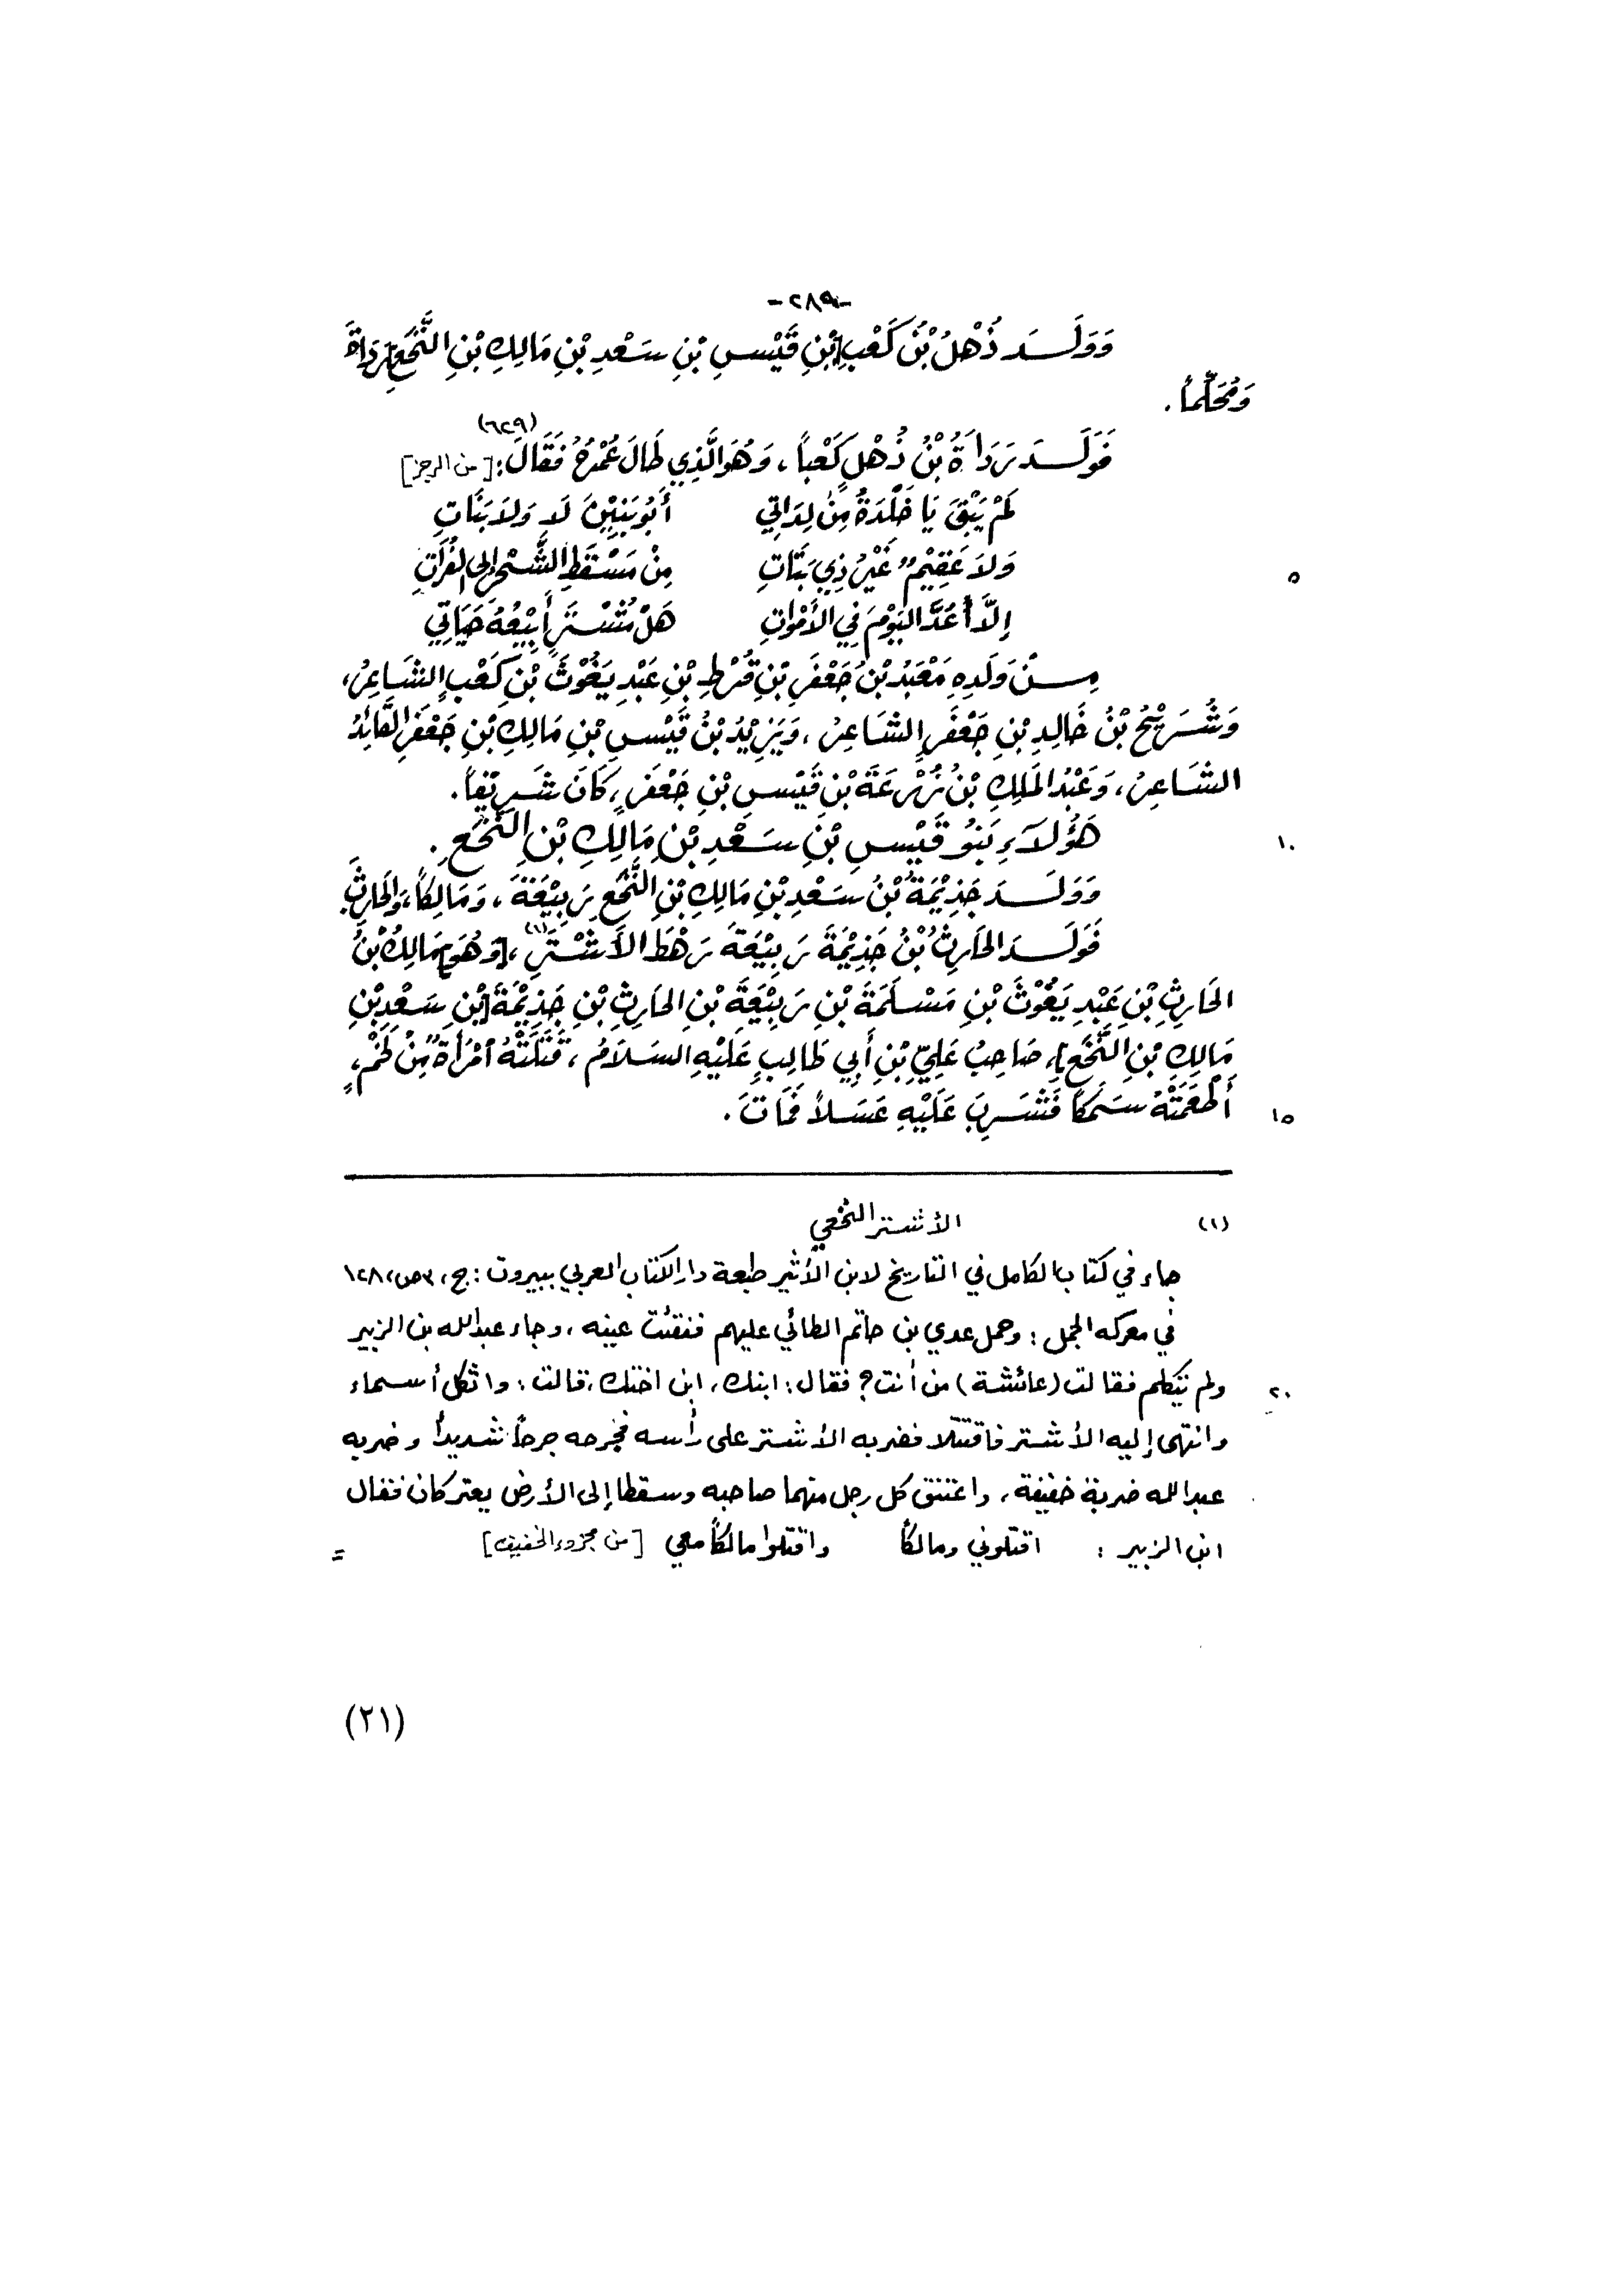 -٢٨٩-
وَوَلَدَ ذُهْلُ بْنُ كَعْبِ [بْنِ قَيْسِ بْنِ سَعْدِ بْنِ مَالِكِ بْنِ النَّخَعِ] رَدَاةَ
وَمُحَلِّماً.
فَوَلَدَ رَدَاةُ بْنُ ذُهْلٍ كَعْباً، وَهُوَ الَّذِي طَالَ عُمْرُهُ فَقَالَ: (٦٢٩) [من الرجز]
لَمْ يَبْقَ يَا خَلْدَةُ مِنْ لِدَاتِي أَبُو بَنِيْنَ لَا وَلَا بَنَاتِ
وَلَا عَقِيْمٌ غَيْرُ ذِي بَتَاتِ مِنْ مَسْقَطِ الشَّحْرِ إِلى الفُرَاتِ ٥
إِلَّا أُعَدُّ اليَوْمَ فِي الأَمْوَاتِ هَلْ مُشْتَرٍ أَبِيْعُهُ حَيَاتِي
مِنْ وَلَدِهِ مَعْبَدُ بْنُ جَعْفَرِ بْنِ قُرْطِ بْنِ عَبْدِ يَغُوْثَ بْنِ كَعْبٍ الشَّاعِرُ،
وَشُرَيْحُ بْنُ خَالِدِ بْنِ جَعْفَرٍ الشَّاعِرُ، وَيَزِيْدُ بْنُ قَيْسِ بْنِ مَالِكِ بْنِ جَعْفَرٍ القَائِدُ
الشَّاعِرُ، وَعَبْدُ المَلِكِ بْنُ زُرْعَةَ بْنِ قَيْسِ بْنِ جَعْفَرٍ، كَانَ شَرِيْفاً.
هَؤُلَاَءِ بَنُو قَيْسِ بْنِ سَعْدِ بْنِ مَالِكِ بْنِ النَّخَعِ. ١٠
وَوَلَدَ جَذِيْمَةُ بْنُ سَعْدِ بْنِ مَالِكِ بْنِ النَّخَعِ رَبِيْعَةَ، وَمَالِكاً، وَالحَارِثَ.
فَوَلَدَ الحَارِثُ بْنُ جَذِيْمَةَ رَبِيْعَةَ رَهْطَ الأَشْتَرِ(١)، [وَهُوَ] مَالِكُ بْنُ
الحَارِثِ بْنِ عَبْدِ يَغُوْثَ بْنِ مَسْلَمَةَ بْنِ رَبِيْعَةَ بْنِ الحَارِثِ بْنِ جَذِيْمَةَ [بْنِ سَعْدِ بْنِ
مَالِكِ بْنِ النَّخَعِ]، صَاحِبُ عَلِيِّ بْنِ أَبِي طَالِبٍ عَلَيْهِ السَّلَامُ، قَتَلَتْهُ امْرَأَةٌ مِنْ لَخْمٍ،
أَطْعَمَتْهُ سَمَكاً فَشَرِبَ عَلَيْهِ عَسَلاً فَمَاتَ. ١٥
(١) الأشتر النخعي
جاء في كتاب الكامل في التاريخ لابن الأثير طبعة دار الكتاب العربي ببيروت: ج، ٣ ص، ١٢٨
في معركه الجمل: وحمل عدي بن حاتم الطائي عليهم ففقئت عينه، وجاء عبدالله بن الزبير
ولم يتكلم فقالت (عائشة) من أنت؟ فقال: ابنك، ابن اختك، قالت: واثكل أسماء ٢٠
وانتهى إليه الأشتر فاقتتلا فضربه الأشتر على رأسه فجرحه جرحاً شديداً وضربه
عبدالله ضربة خفيفة، واعتنق كل رجل منهما صاحبه وسقطا إلى الأرض يعتركان فقال
ابن الزبير: اقتلوني ومالكاً واقتلوا مالكاً معي [من مجزوء الخفيف] =
(٢١)